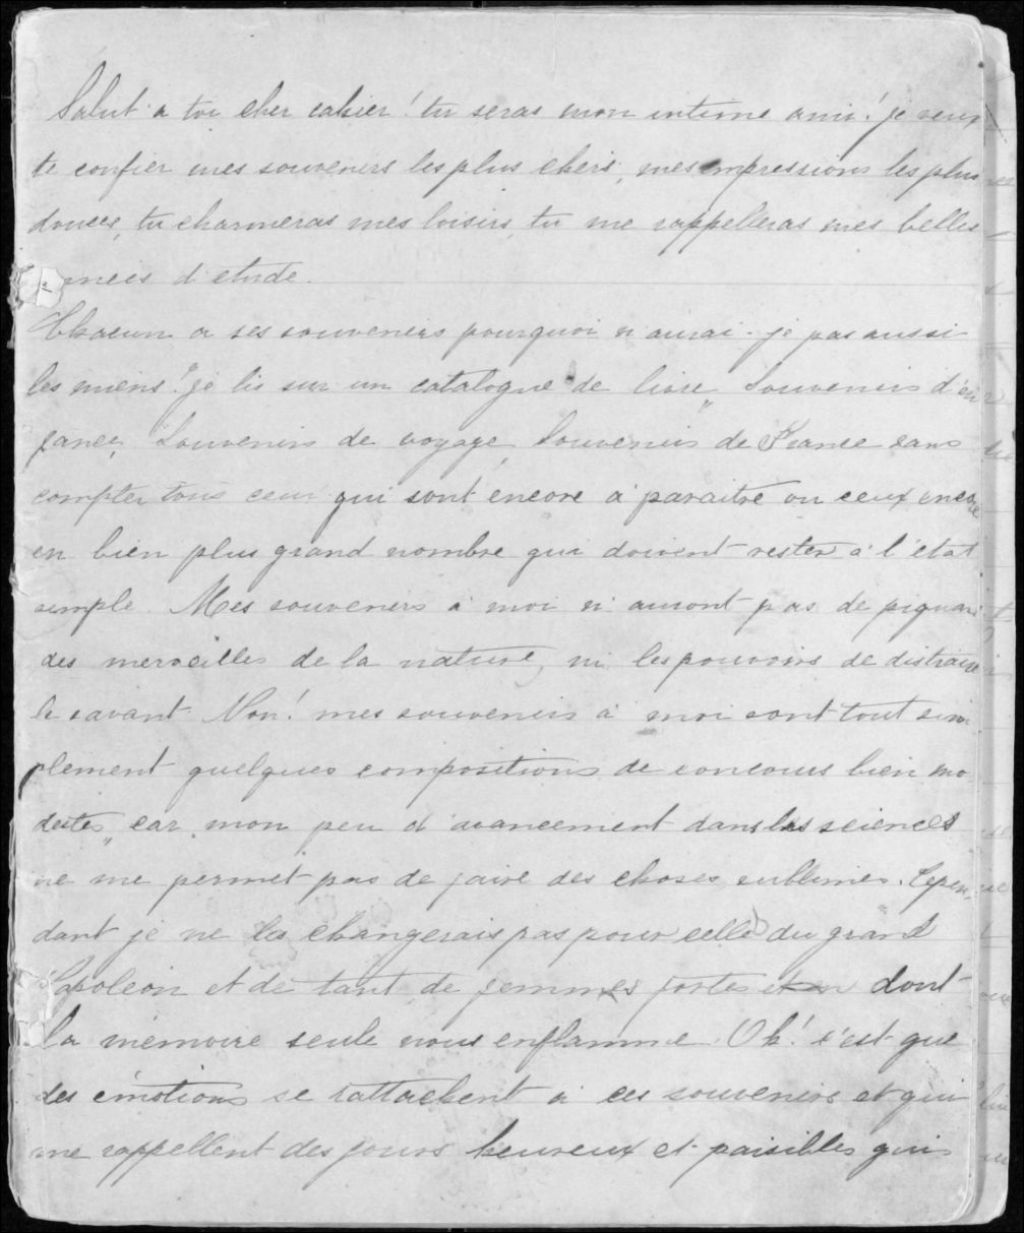 Salut a toi cher cahier! tu seras mon intime ami! je veux
te confier mes souvenirs les plus chers, mes impressions les plus
douces, tu charmeras mes loisirs, tu me rappelleras mes belles
années d'etude.
Chacun a ses souvenirs pourquoi n'aurai-je pas aussi
les miens? je lis sur un catalogue de livre "Souvenirs d'en
fance, Souvenirs de voyage, Souvenirs de France sans
compter tous ceux qui sont encore à paraitre ou ceux encore
en bien plus grand nombre qui doivent rester à l'état
simple. Mes souvenirs à moi n'auront pas de piquant
des merveilles de la nature, ni les pouvoirs de distraire
le savant. Non! mes souvenirs à moi sont tout sim
plement quelques compositions de concours bien mo
destes, car mon peu d'avancement dans les sciences
ne me permet pas de faire des choses sublimes. Cepen
dant je ne les changerais pas pour celle du grand
Napoléon et de tant de femmes fortes dont
la mémoire seule nous enflamme. Oh! c'est que
des émotions se rattachent à ces souvenirs et qui
me rappellent des jours heureux et paisibles qui